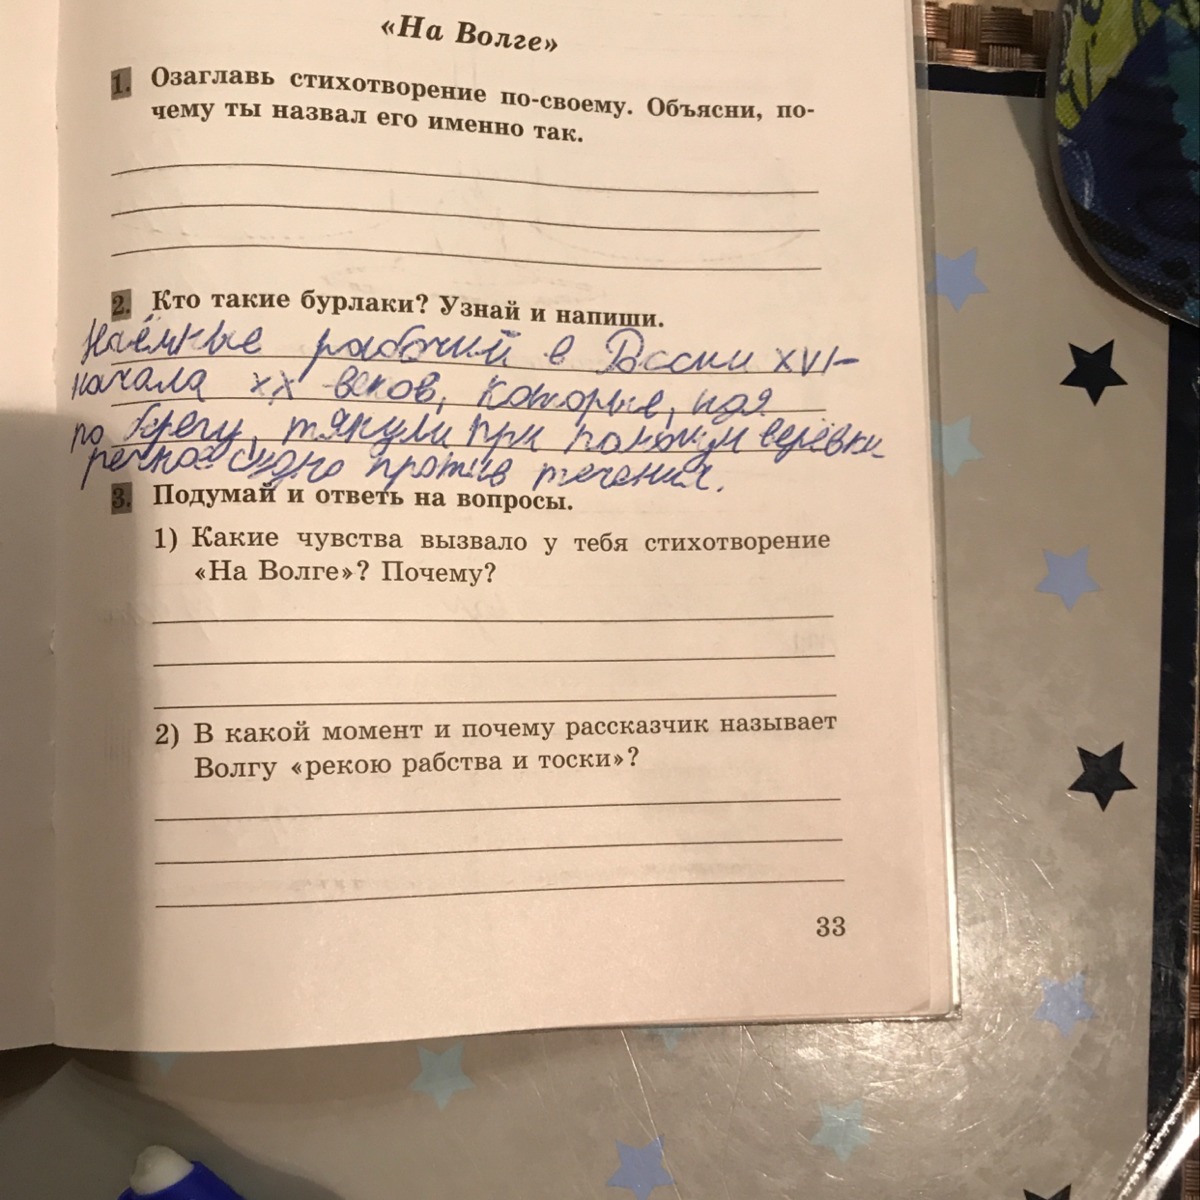 «На Волге»
1. Озаглавь стихотворение по-своему. Объясни, по-
чему ты назвал его именно так.
2. Кто такие бурлаки? Узнай и напиши.
Наёмные рабочий в России XVI-
начала XX веков, которые, идя
по берегу, тянули при помощи верёвки
речное судно против течения.
3. Подумай и ответь на вопросы.
1) Какие чувства вызвало у тебя стихотворение
«На Волге»? Почему?
2) В какой момент и почему рассказчик называет
Волгу «рекою рабства и тоски»?
33